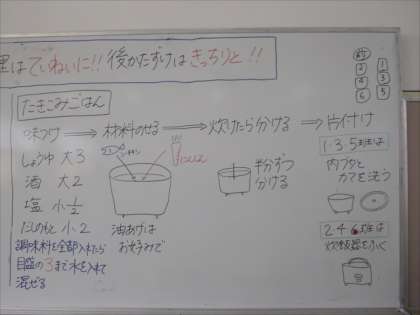 理はていねいに!! 後かたずけはきっちりと!!
前
2 1
4 3
6 5
たきこみごはん
味つけ → 材料のせる → 炊けたら分ける → 片付け
しょうゆ 大3
酒 大2
塩 小1/2
だしのもと 小2
調味料を全部入れたら
目盛の3まで水を入れて
混ぜる
油あげは
お好みで
半分ずつ
分ける
1・3・5班は
内フタと
カマを洗う
2・4・6班は
炊飯器をふく